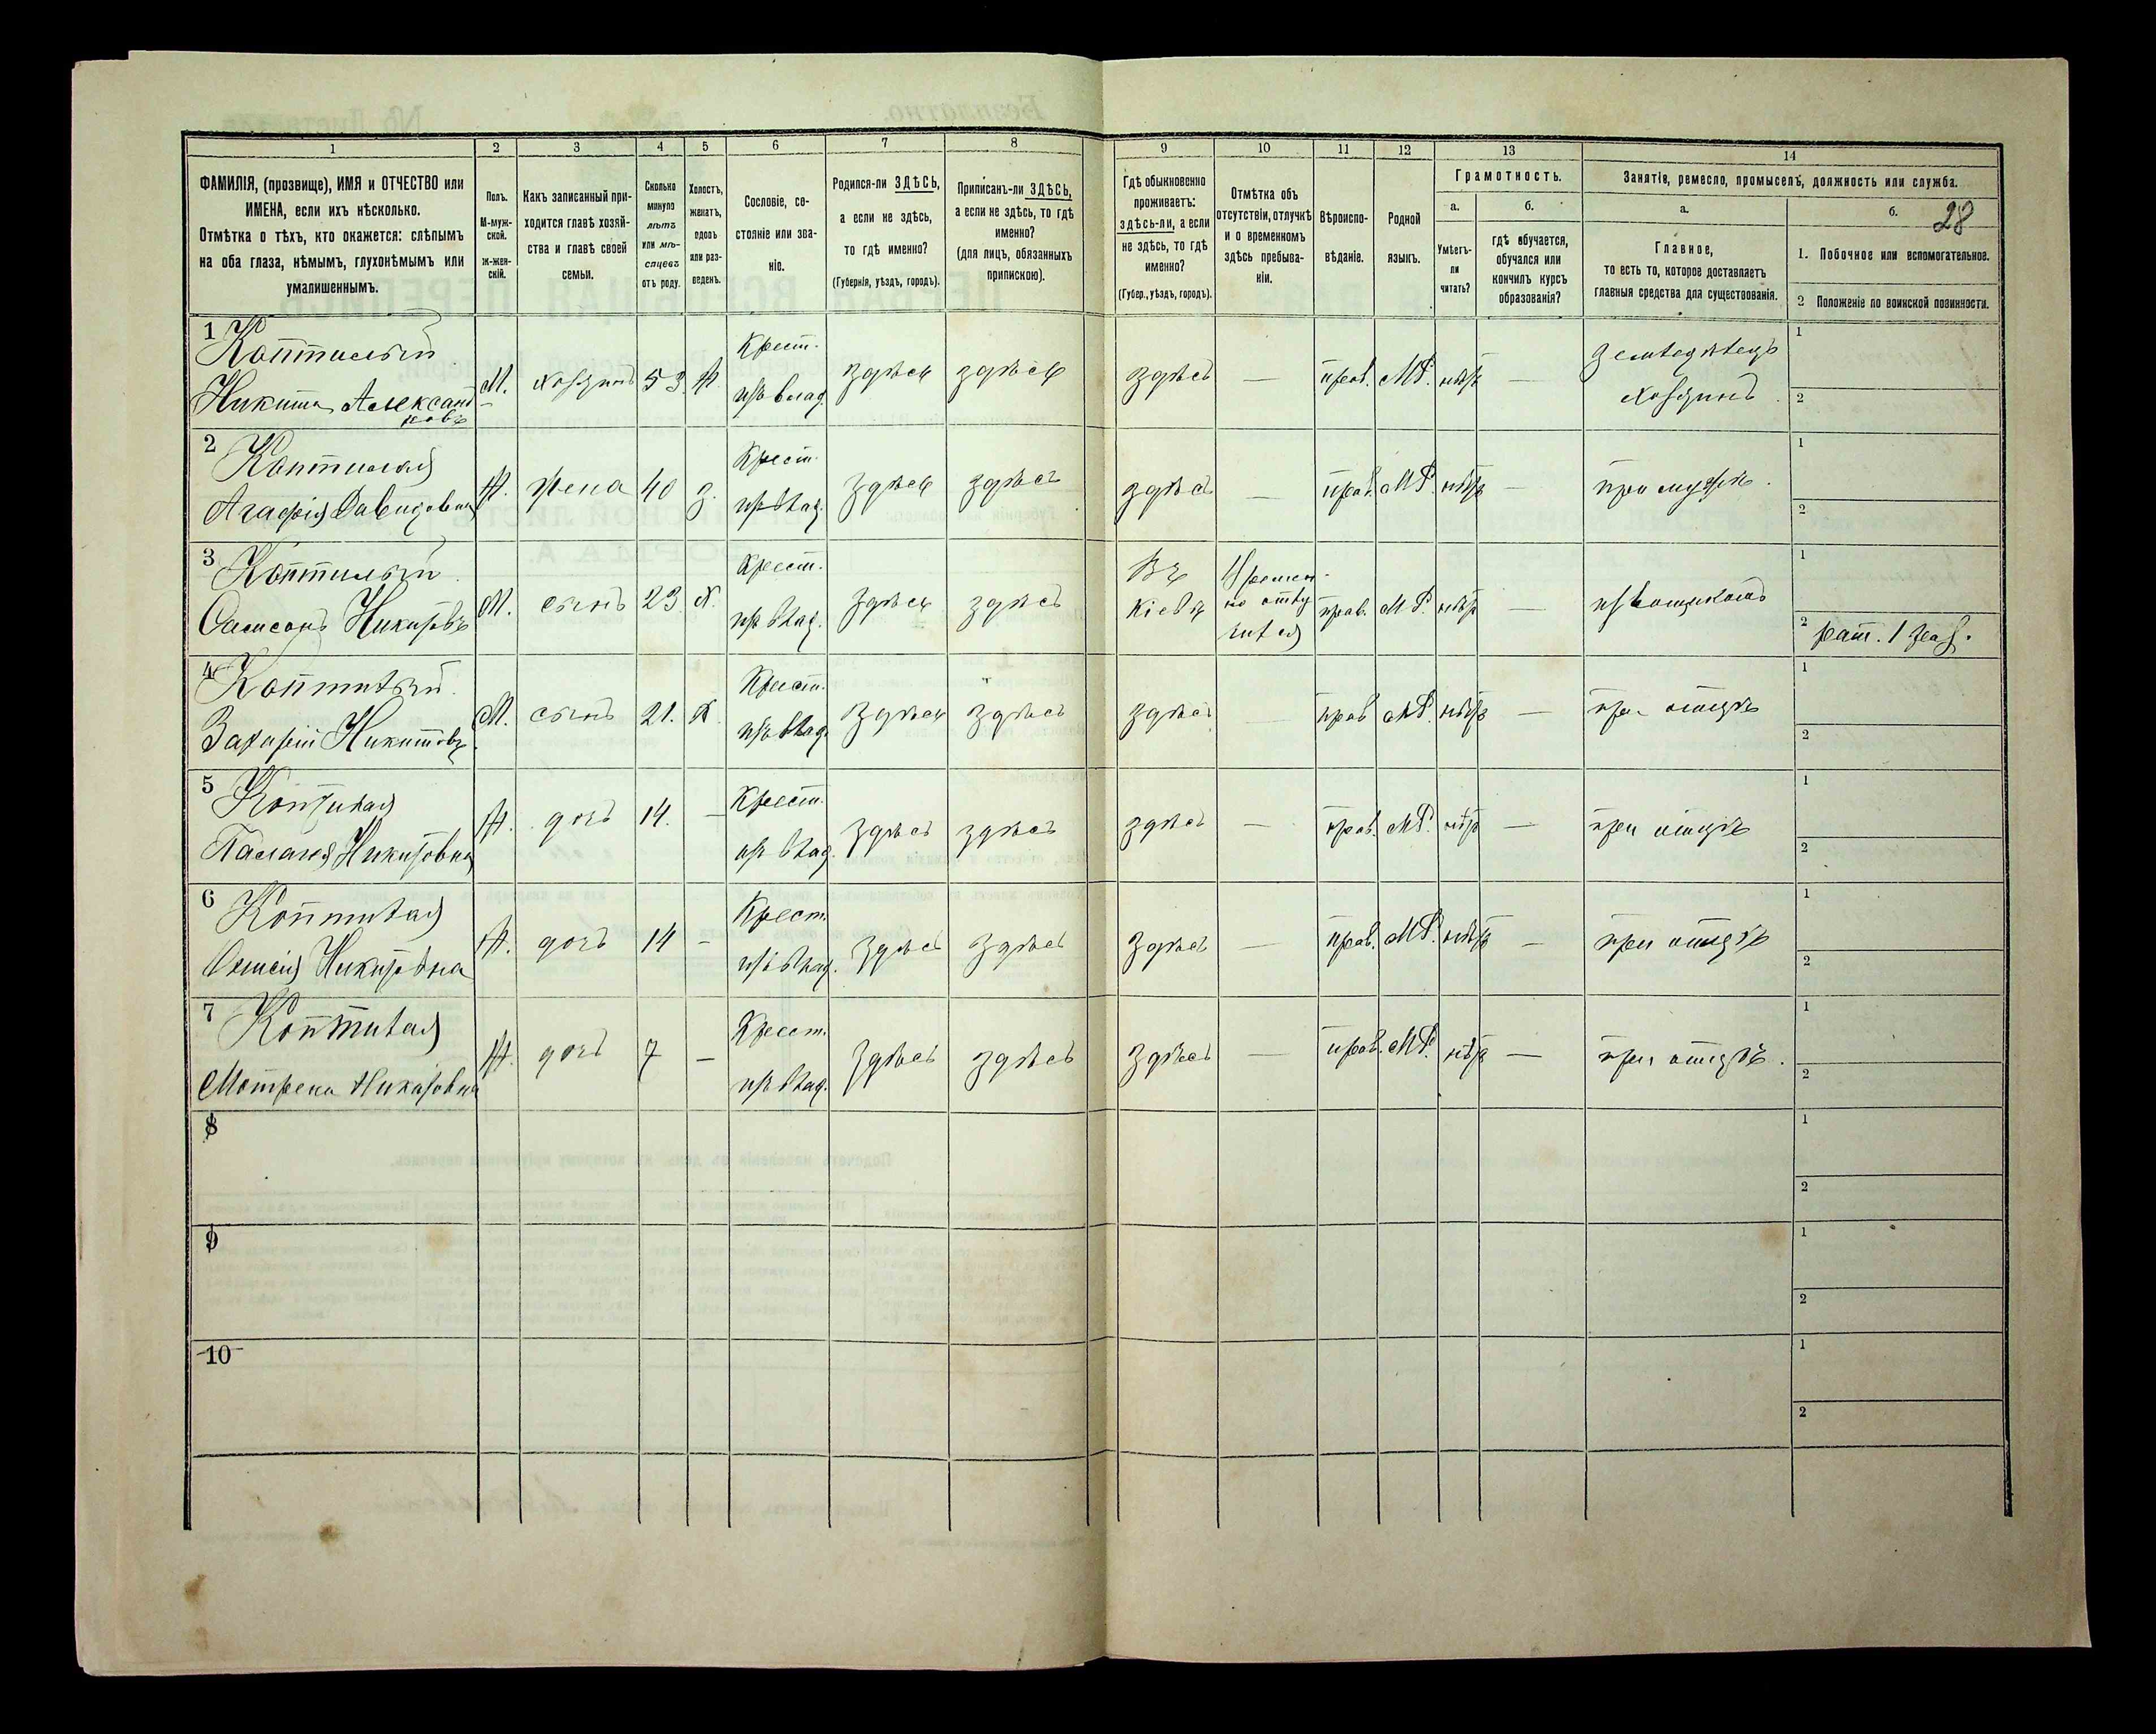 28
1 2 3 4 5 6 7 8 9 10 11 12 13 14
ФАМИЛІЯ, (прозвище), ИМЯ и ОТЧЕСТВО или
ИМЕНА, если ихъ нѣсколько.
Отмѣтка о тѣхъ, кто окажется: слѣпымъ
на оба глаза, нѣмымъ, глухонѣмымъ или
умалишеннымъ.
Полъ.
М-муж-
ской.
Ж-жен-
скій.
Какъ записанный при-
ходится главѣ хозяй-
ства и главѣ своей
семьи.
Сколько
минуло
лѣтъ
или мѣ-
сяцевъ
отъ роду.
Холостъ,
женатъ,
вдовъ
или раз-
веденъ.
Сословіе, со-
стояніе или зва-
ніе.
Родился-ли ЗДѢСЬ,
а если не здѣсь,
то гдѣ именно?
(Губернія, уѣздъ, городъ).
Приписанъ-ли ЗДѢСЬ,
а если не здѣсь, то гдѣ
именно?
(для лицъ, обязанныхъ
припискою).
Гдѣ обыкновенно
проживаетъ:
здѣсь-ли, а если
не здѣсь, то гдѣ
именно?
(Губер., уѣздъ, городъ).
Отмѣтка объ
отсутствіи, отлучкѣ
и о временномъ
здѣсь пребыва-
ніи.
Вѣроиспо-
вѣданіе.
Родной
языкъ.
Грамотность.
а.
Умѣетъ-
ли
читать?
б.
гдѣ обучается,
обучался или
кончилъ курсъ
образованія?
Занятіе, ремесло, промыселъ, должность или служба.
а.
Главное,
то есть то, которое доставляетъ
главныя средства для существованія.
б.
1. Побочное или вспомогательное.
2 Положеніе по воинской повинности.
1 Коптилый
Никита Александ
ровъ
М. хозяинъ 53 Ж.
Крест.
изъ влад.
здѣсь здѣсь здѣсь — прав. М.Р. нѣтъ —
земледѣлецъ
хозяинъ
1
2
2 Коптилая
Агафія Давидовна
Ж. жена 40 з.
Крест.
изъ влад.
здѣсь здѣсь здѣсь — прав. М.Р. нѣтъ — при мужѣ.
1
2
3 Коптилый
Самсонъ Никитовъ
М. сынъ 23 Х.
Крест.
изъ влад.
здѣсь здѣсь
Въ
Кіевѣ
Времен-
но отлу
чился
прав. М.Р. нѣтъ — извощикомъ
1
2 рат. 1 раз.
4 Коптилый
Захарій Никитовъ
М. сынъ 21. Х.
Крест.
изъ влад.
здѣсь здѣсь здѣсь — прав М.Р. нѣтъ — при отцѣ
1
2
5 Коптилая
Палагея Никитовна
Ж. дочь 14. —
Крест.
изъ влад.
здѣсь здѣсь здѣсь — прав. М.Р. нѣтъ — при отцѣ
1
2
6 Коптилая
Никитовна
Ж. дочь 14 —
Крест.
изъ влад.
здѣсь здѣсь здѣсь — прав. М.Р. нѣтъ — при отцѣ
1
2
7 Коптилая
Мотрена Никитовна
Ж. дочь 7 —
Крест.
изъ влад.
здѣсь здѣсь здѣсь — прав. М.Р. нѣтъ — при отцѣ.
1
2
8
1
2
9
1
2
10
1
2